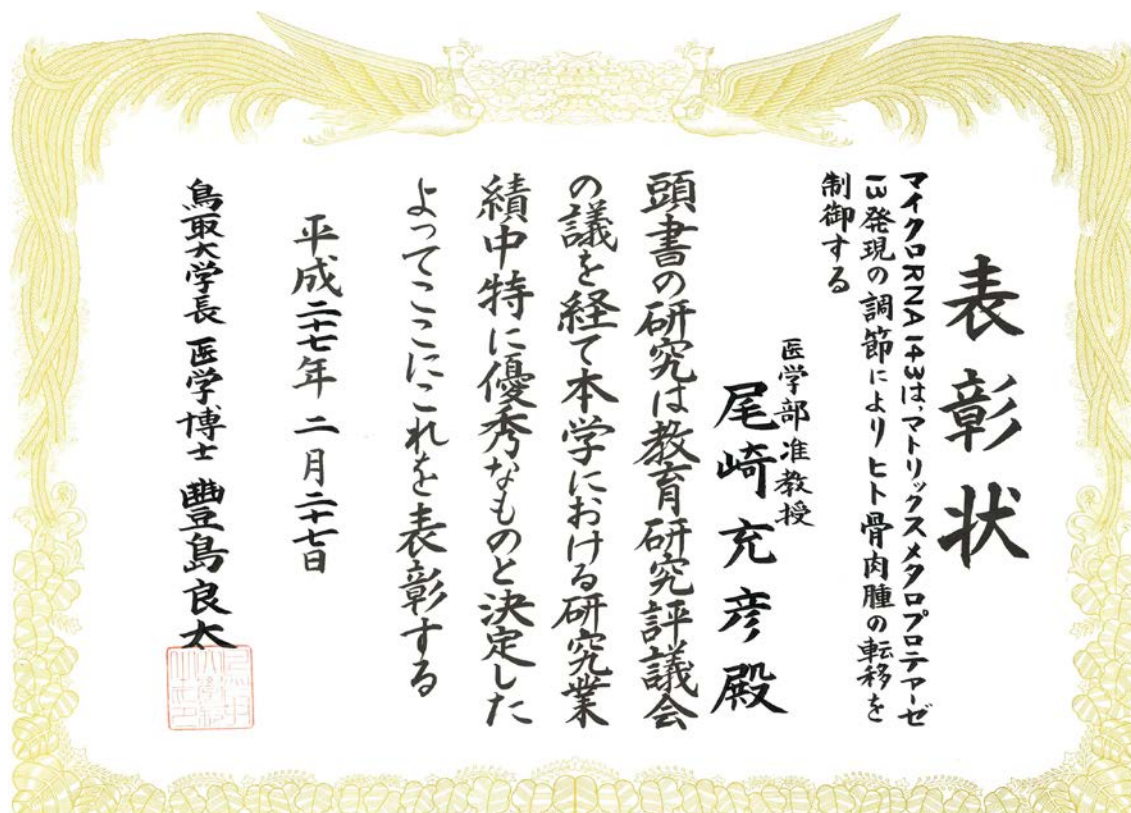 表彰状
マイクロRNA143は、マトリックスメタロプロテアーゼ
13発現の調節によりヒト骨肉腫の転移を
制御する
医学部准教授
尾崎充彦殿
頭書の研究は教育研究評議会
の議を経て本学における研究業
績中特に優秀なものと決定した
よってここにこれを表彰する
平成二十七年二月二十七日
鳥取大学長 医学博士 豐島良太